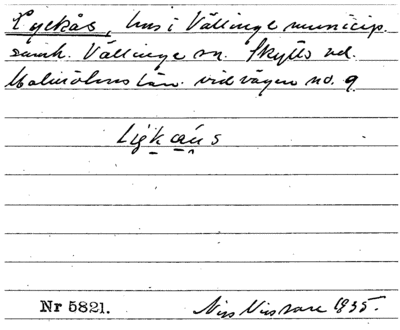 Lyckås, hus i Vällinge municip.
samh. Vällinge sn. Skytts hd.
Malmöhus län. vid vägen no. 9
Nr 5821.
1935.